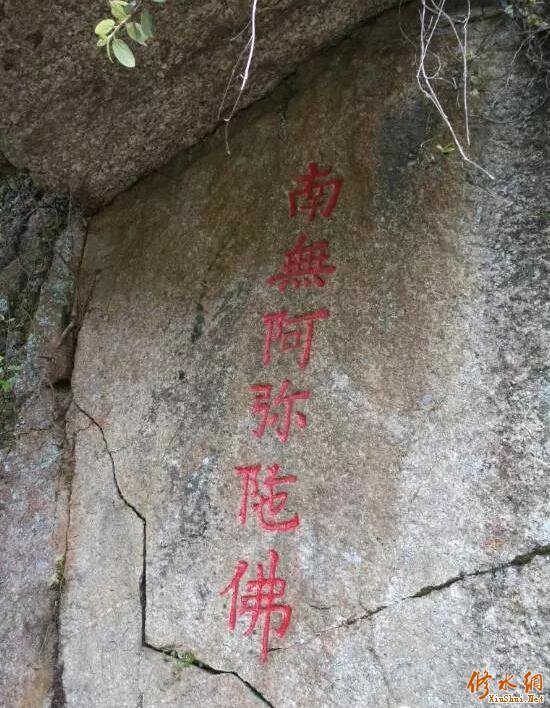 南無阿弥陀佛
修水網
XiuShui.Net